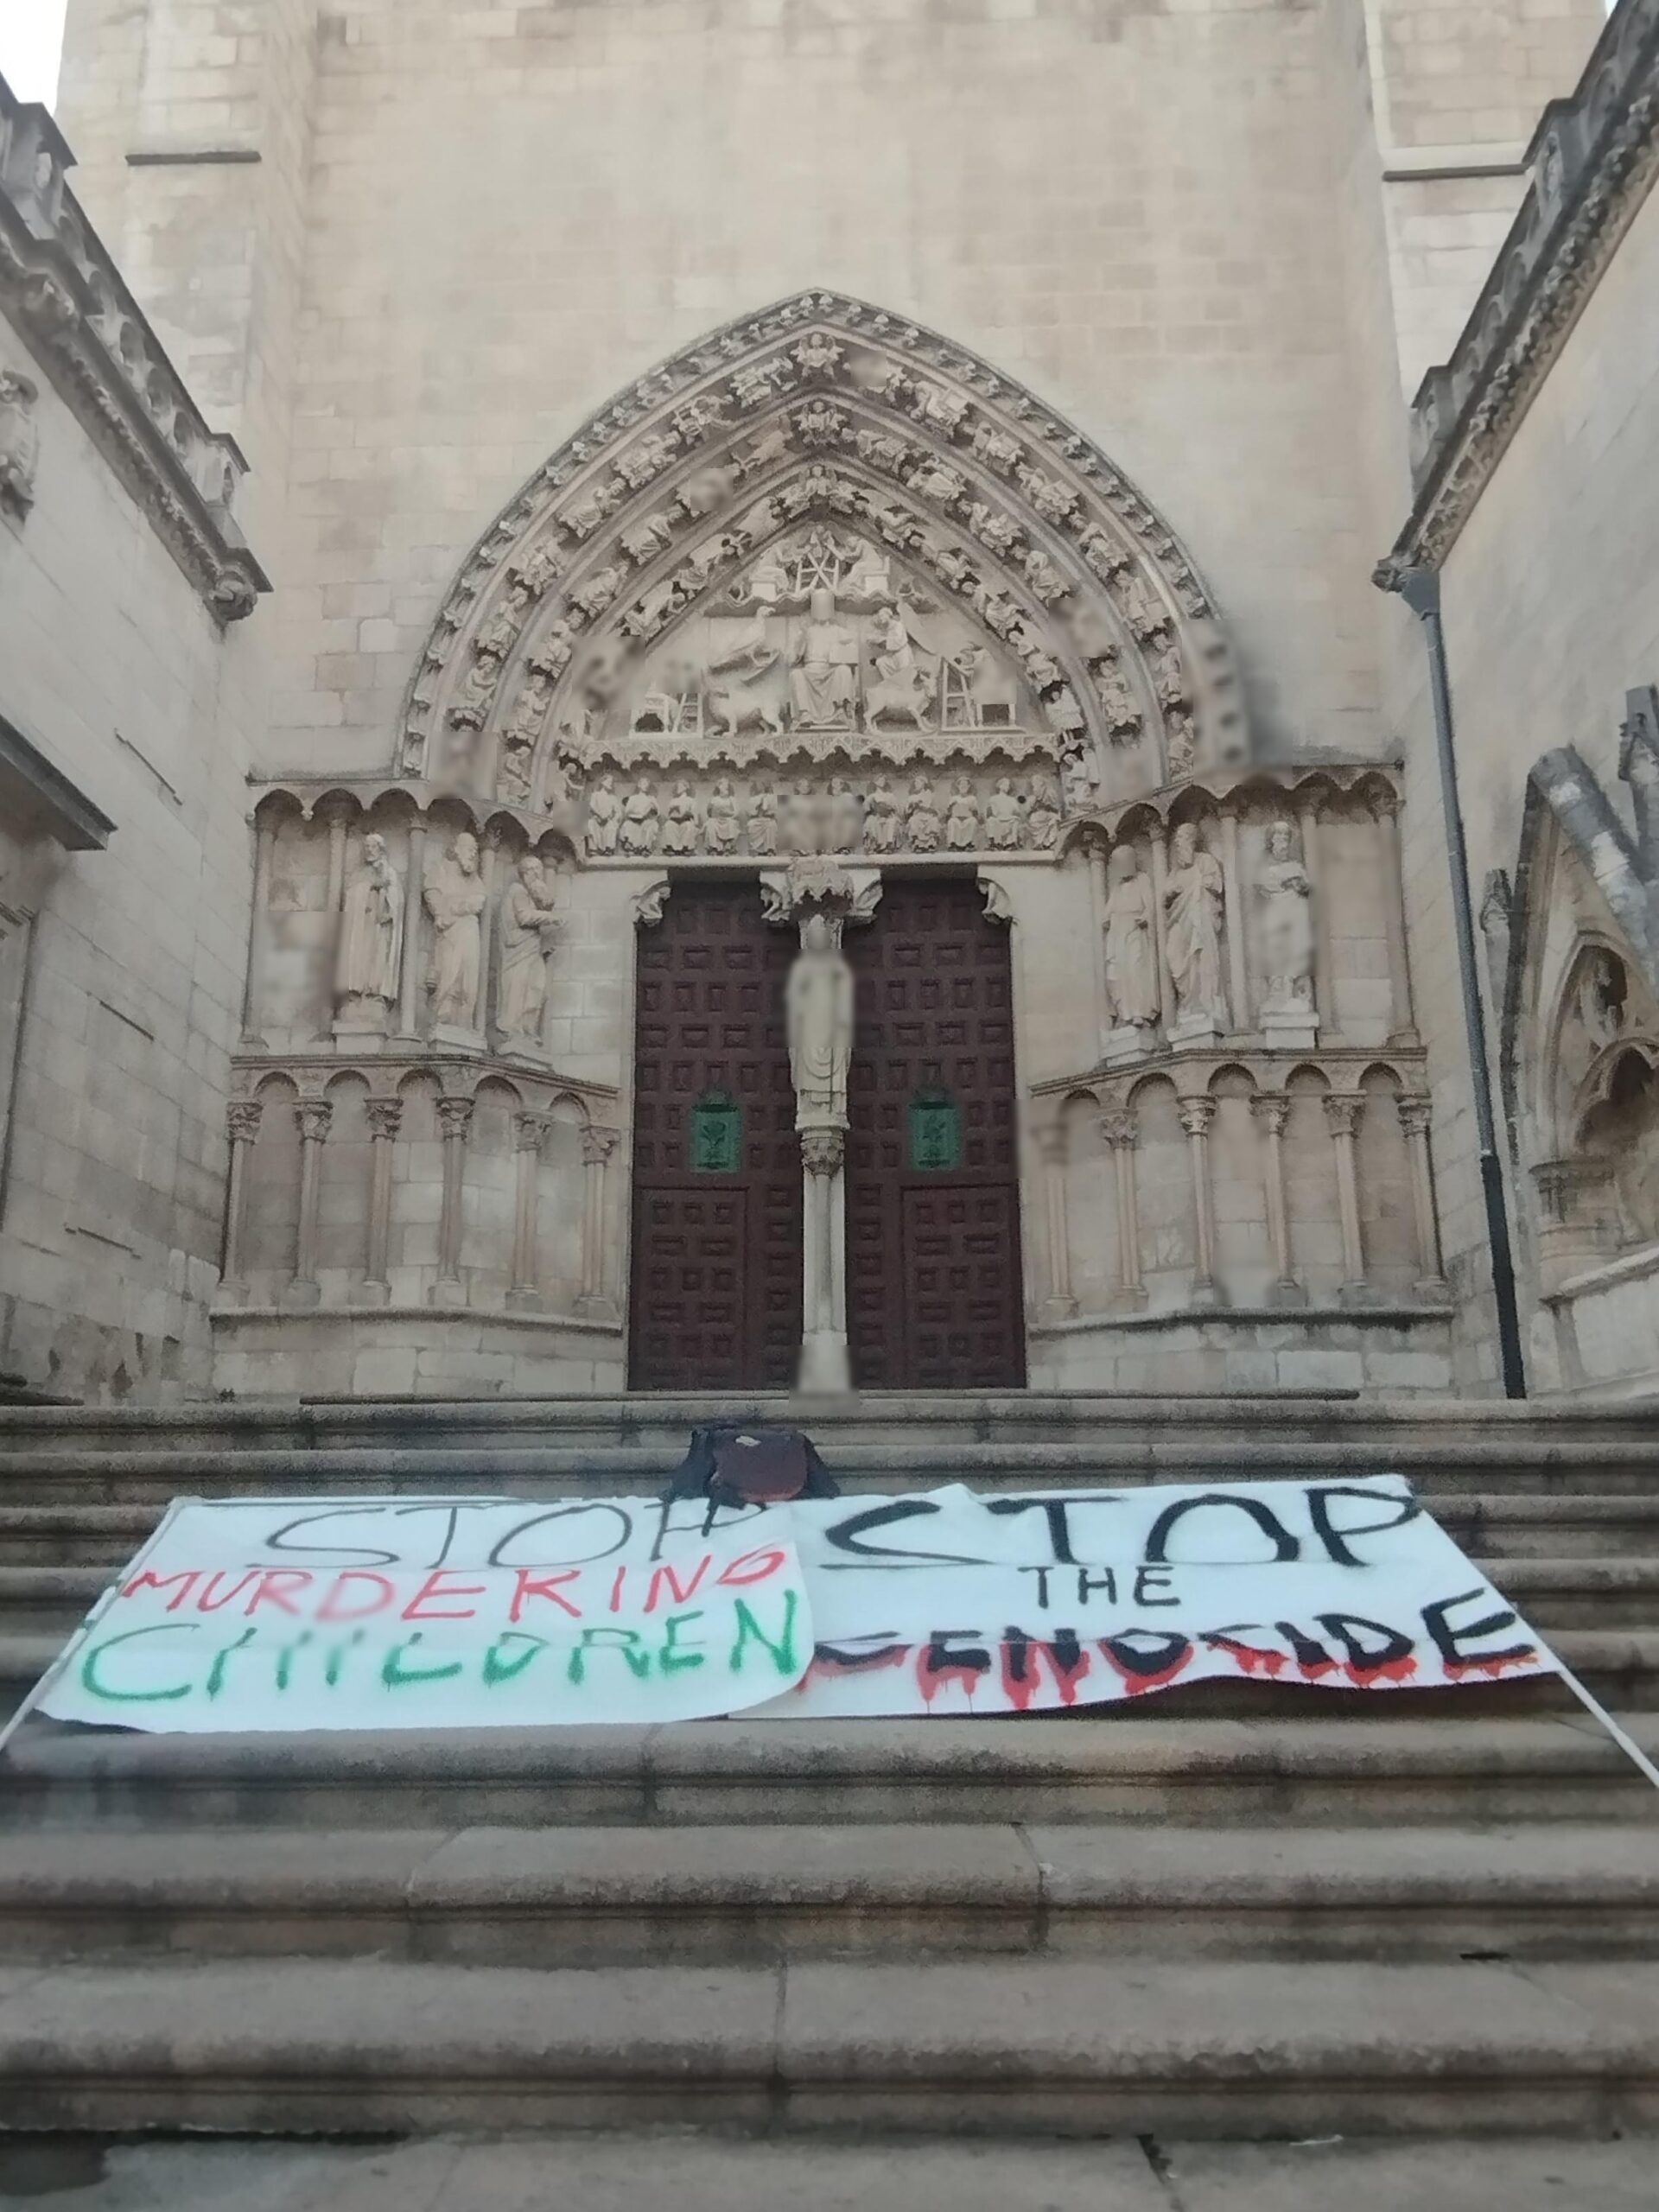 STOP
MURDERING
CHILDREN
STOP
THE
GENOCIDE